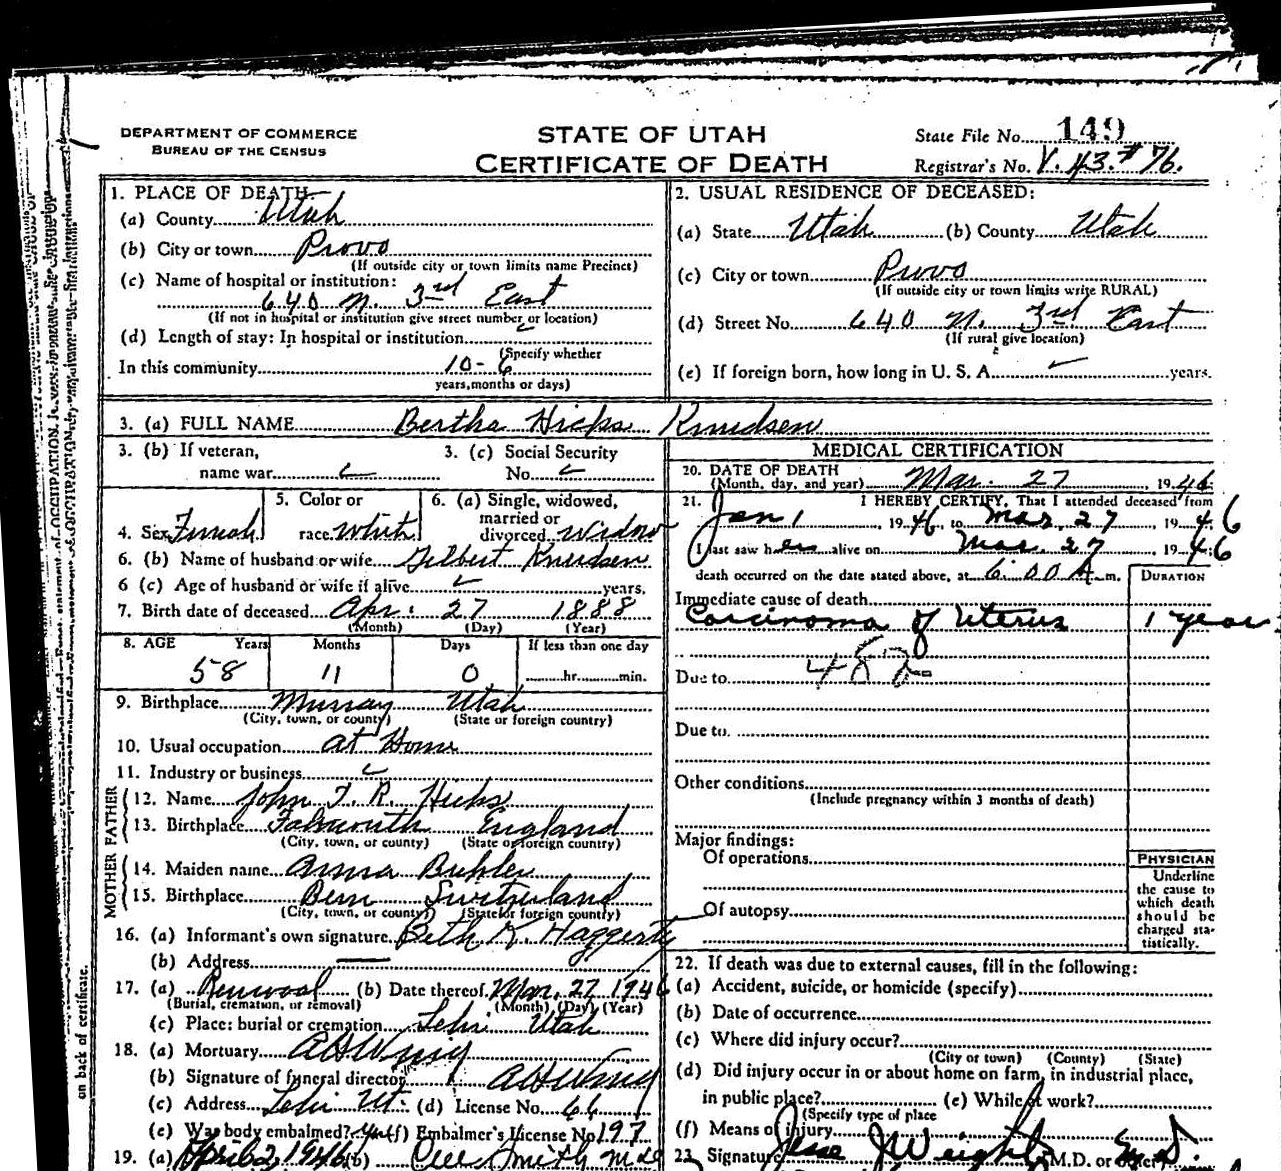 DEPARTMENT OF COMMERCE
BUREAU OF THE CENSUS
STATE OF UTAH
CERTIFICATE OF DEATH
State File No. 149
Registrar's No. V. 43. # 76.
1. PLACE OF DEATH
(a) County Utah
(b) City or town Provo
(If outside city or town limits name Precinct)
(c) Name of hospital or institution:
640 N. 3rd East
(If not in hospital or institution give street number or location)
(d) Length of stay: In hospital or institution
(Specify whether
In this community 10-6
years, months or days)
2. USUAL RESIDENCE OF DECEASED:
(a) State Utah (b) County Utah
(c) City or town Provo
(If outside city or town limits write RURAL)
(d) Street No. 640 N. 3rd East
(If rural give location)
(e) If foreign born, how long in U. S. A. years.
3. (a) FULL NAME Bertha Hicks Knudsen
3. (b) If veteran,
name war
3. (c) Social Security
No.
4. Sex Female
5. Color or
race White
6. (a) Single, widowed,
married or
divorced Widow
6. (b) Name of husband or wife Gilbert Knudsen
6 (c) Age of husband or wife if alive years.
7. Birth date of deceased Apr. 27 1888
(Month) (Day) (Year)
8. AGE Years Months Days If less than one day
58 11 0 hr. min.
9. Birthplace Murray Utah
(City, town, or county) (State or foreign country)
10. Usual occupation at Home
11. Industry or business
FATHER
12. Name John T. R. Hicks
13. Birthplace Falmouth England
(City, town, or county) (State or foreign country)
MOTHER
14. Maiden name Anna Buhler
15. Birthplace Bern Switzerland
(City, town, or county) (State or foreign country)
16. (a) Informant's own signature Beth K. Haggerty
(b) Address
17. (a) Removal (b) Date thereof Mar. 27 1946
(Burial, cremation, or removal) (Month) (Day) (Year)
(c) Place: burial or cremation Lehi Utah
18. (a) Mortuary
(b) Signature of funeral director
(c) Address Lehi Ut. (d) License No. 66
(e) Was body embalmed? yes (f) Embalmer's License No. 197
19. (a) April 2, 1946 (b) Smith
MEDICAL CERTIFICATION
20. DATE OF DEATH
(Month, day, and year) Mar. 27 1946
21. I HEREBY CERTIFY, That I attended deceased from
Jan 1, 1946, to Mar. 27 1946
I last saw her alive on Mar. 27 1946
death occurred on the date stated above, at 6:00 A m.
DURATION
Immediate cause of death
Carcinoma of Uterus 1 year
Due to 482
Due to
Other conditions
(Include pregnancy within 3 months of death)
Major findings:
Of operations
Of autopsy
PHYSICIAN
Underline
the cause to
which death
should be
charged sta-
tistically.
22. If death was due to external causes, fill in the following:
(a) Accident, suicide, or homicide (specify)
(b) Date of occurrence
(c) Where did injury occur?
(City or town) (County) (State)
(d) Did injury occur in or about home on farm, in industrial place,
in public place? (e) While at work?
(Specify type of place
(f) Means of injury
23. Signature Jesse J Weight M.D. M.D. or other
on back of certificate.